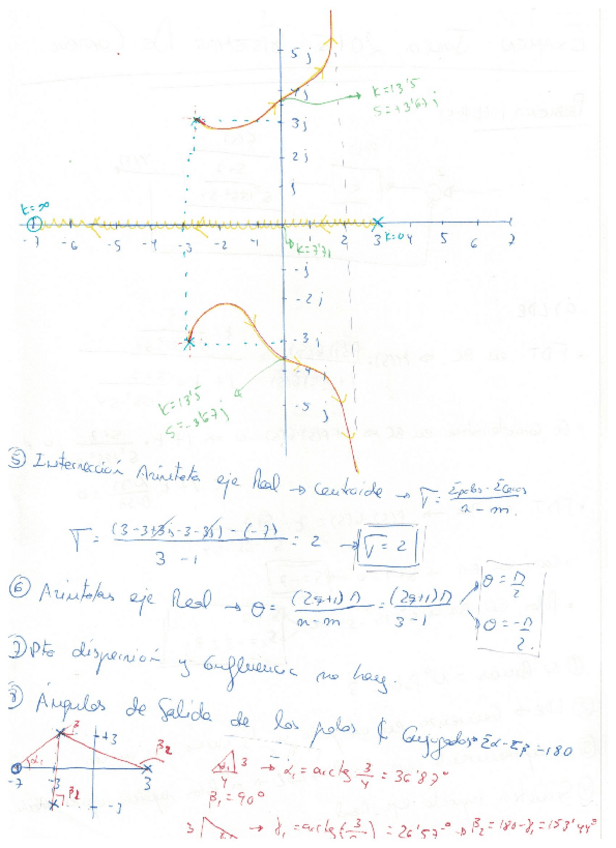 5j
4j
K=13'5
S=+3'67j
3j
2j
j
K=∞
-7 -6 -5 -4 -3 -2 -1 1 2 3 4 5 6 7
K=0
K=7'71
-j
-2j
-3j
-4j
K=13'5
S=-3'67j
-5j
⑤ Intersección Asíntota eje Real → Centroide → σ = Σpolos-Σceros / n-m
σ = (3-3+3j-3-3j)-(-7) / 3-1 = 2 → σ=2
⑥ Asíntotas eje Real → θ = (2q+1)π / n-m = (2q+1)π / 3-1 θ=π/2 θ=-π/2
⑦ Pto dispersión y confluencia no hay.
⑧ Ángulos de Salida de los polos ₵ Conjugados Σα-Σβ=180
+3
-7 -3 3
-3
α₁ β₂ β₁
α₁ 3 4 → α₁=arctg 3/4 = 36'87°
β₁=90°
3 → γ₁=arctg(3/ )=26'57° → β₂=180-γ₁=153'44°